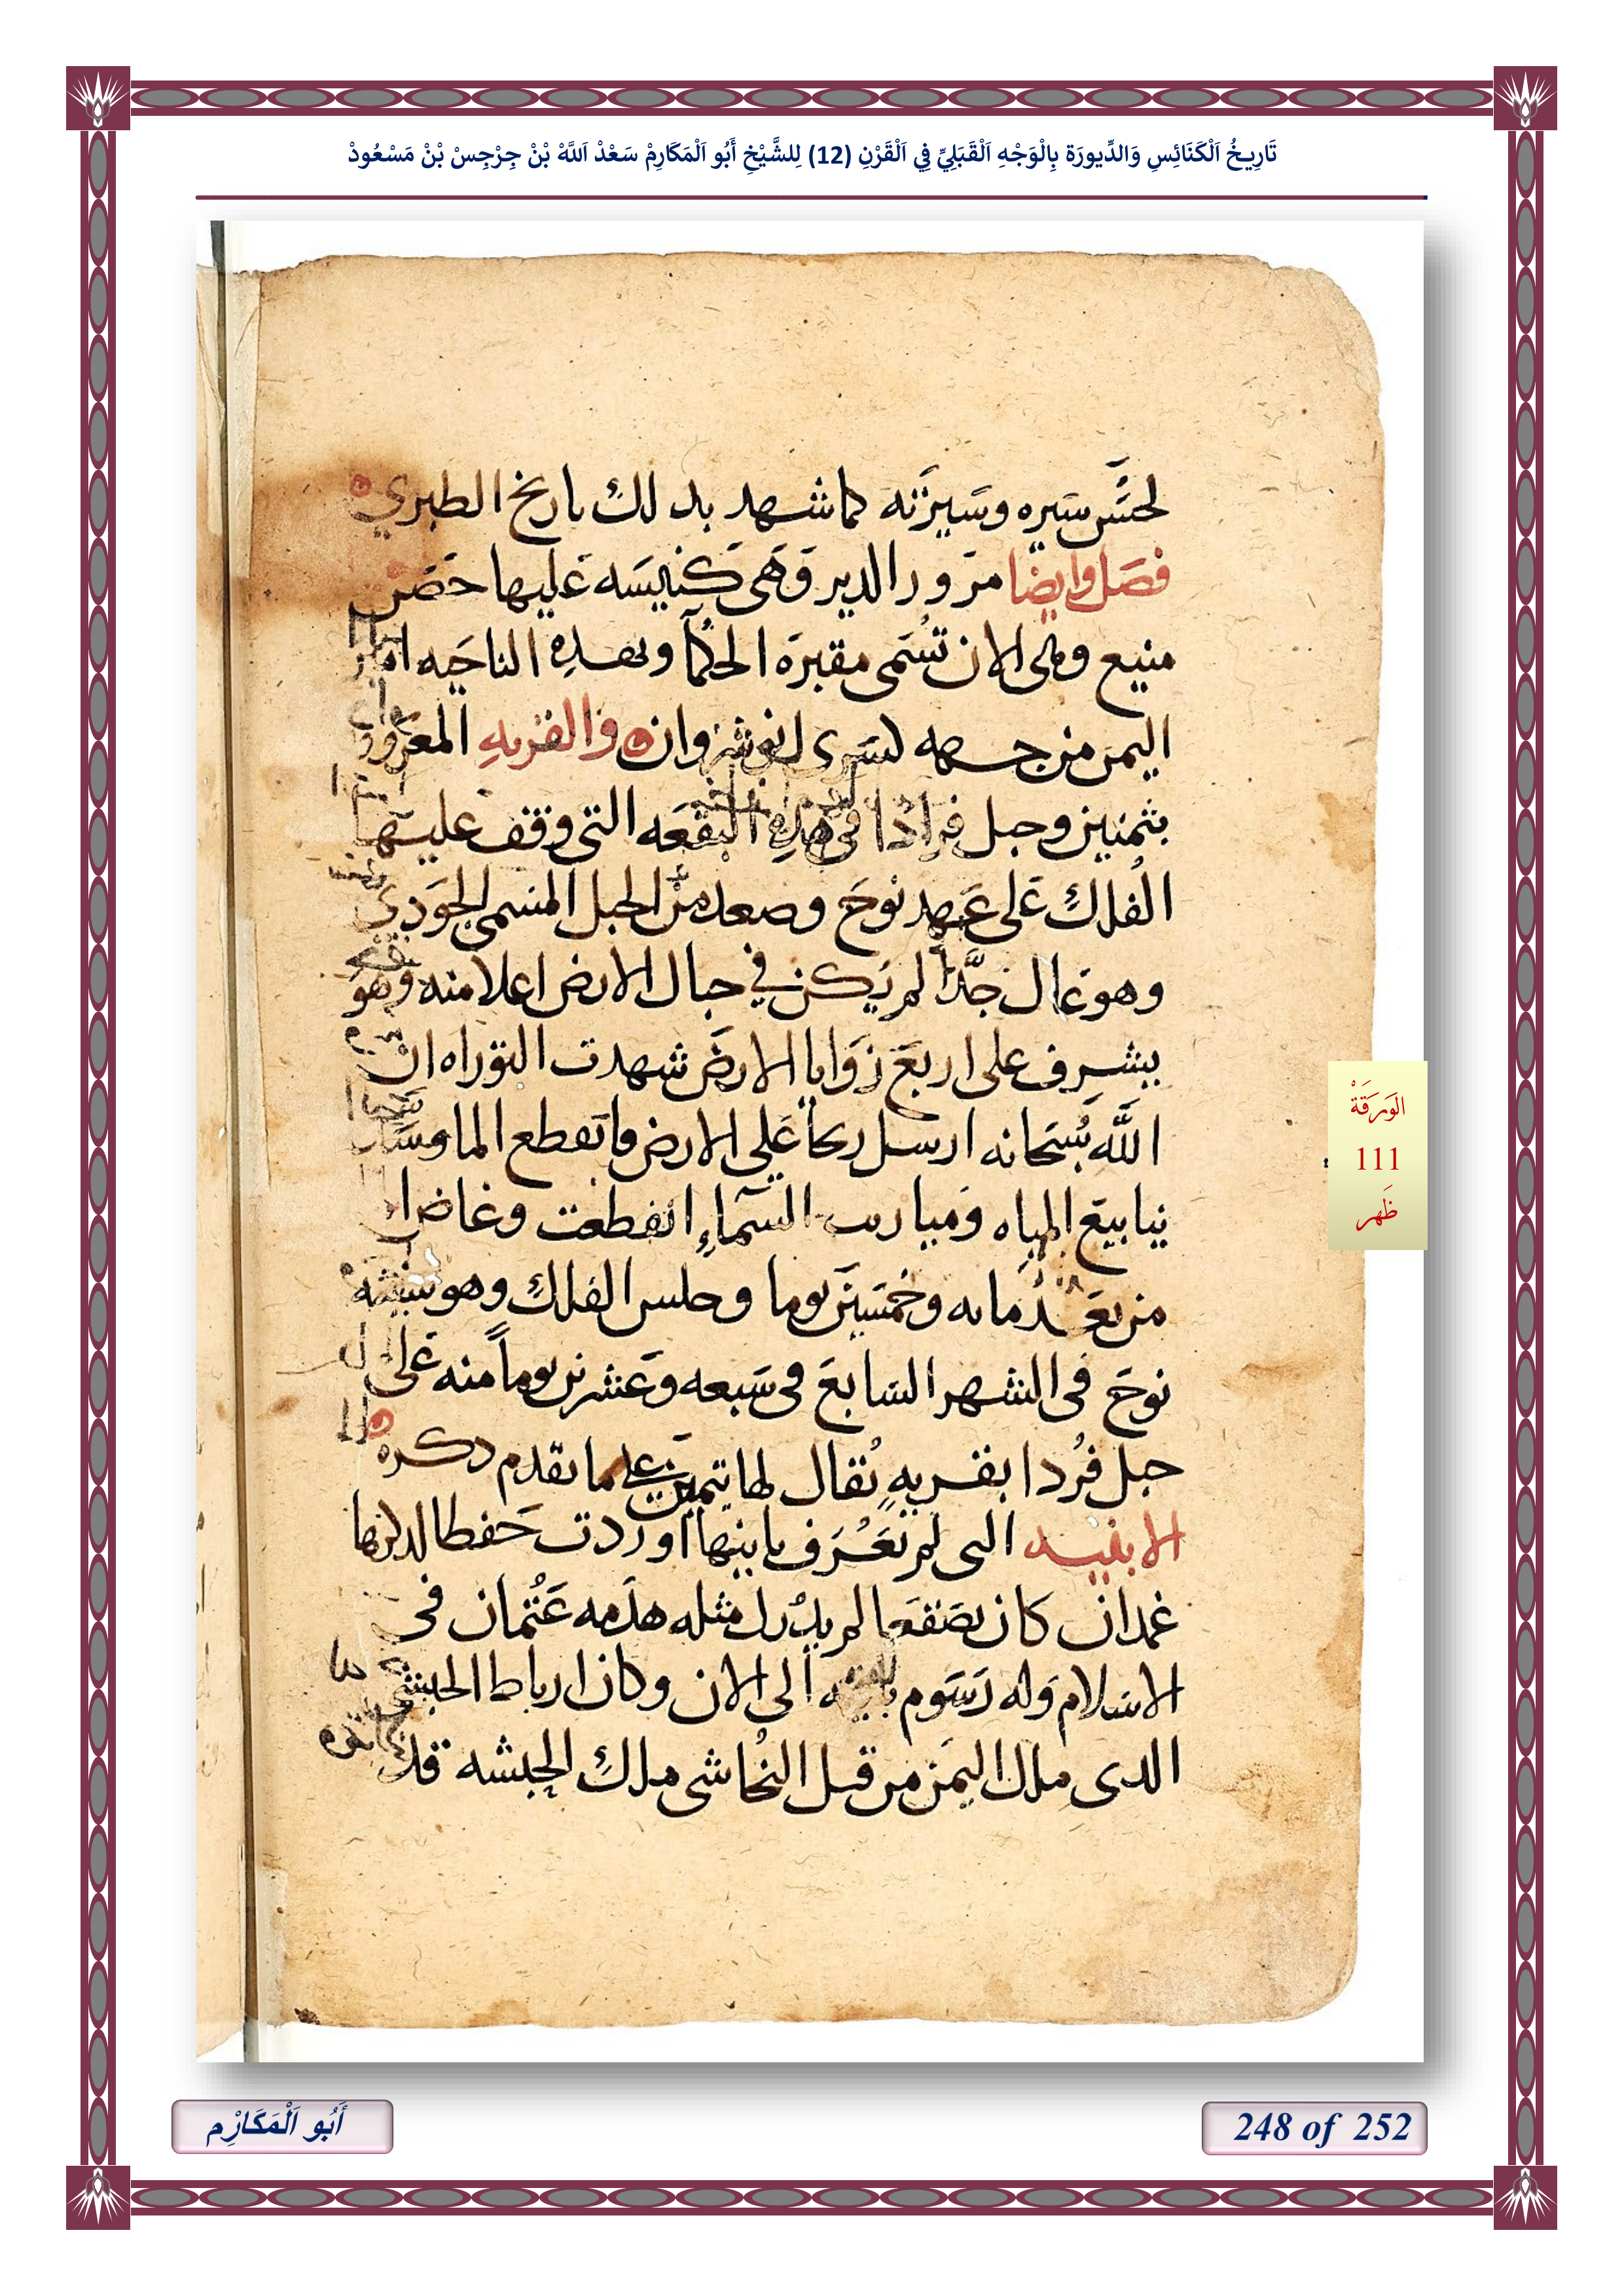 تَارِيخُ اَلْكَنَائِسِ وَالدِّيورَة بِالْوَجْهِ اَلْقَبَلِيِّ فِي اَلْقَرْنِ (12) لِلشَّيْخِ أَبُو اَلْمَكَارِمْ سَعْدْ اَللَّهْ بْنْ جِرْجِسْ بْنْ مَسْعُودْ
لحسَن سيره وسَيرَته كما شهد بدلك تاريخ الطبري
فصَل وايضًا مرو ورالدير وَهَى كَنيسَه عَليها حصَن
منيع وهى الان تسُمَى مقبرَه الحكماَ وبهدِه الناحَيه
اليمن من جهه كسَرى انوشروان والقربهِ المعروف
بثمنين وجبل فرادُا فى هدِه البقعَه التى وقف عليها
الفُلك عَلى عَهد نوحَ وصعد من الجبل المسمى الجَودي
وهو عَال جدًّا لم يَكن في جبال الارض اعلا منه وهوَ
يشرف على اربعَ زوَايا الارضَ شهدت التوراه ان
اللَّه سُبَحانه ارسل ريحاً عَلى الارض فانقطع الما
ينابيعَ المياه وَميازيب السَماءِ انقطعت وغاضا
من بعَد مايه وَخمسَين يوما وجلس الفلك وهو سفينه
نوحَ فى الشهر السَابعَ فى سَبعه وَعَشرين يوماً منه عَلى
جبل فرُدا بقريهٍ يُقال لها تيمين عَلى ما تقدم دكره
الابنيه التى لم تَعُرَف بانيها اوردت حَفظا لدكرها
غمدان كان بصَنعَا لم يدُرك مثله هدَمه عَثمان فى
الاسَلام وَله رَسَوم الى الان وكان ارباط الحبشى
الدى ملك اليمَن من قبل النجُاشى ملك الحبشه قد
الوَرَقَةْ
111
ظَهر
أَبُو اَلْمَكَارِْم
248 of 252